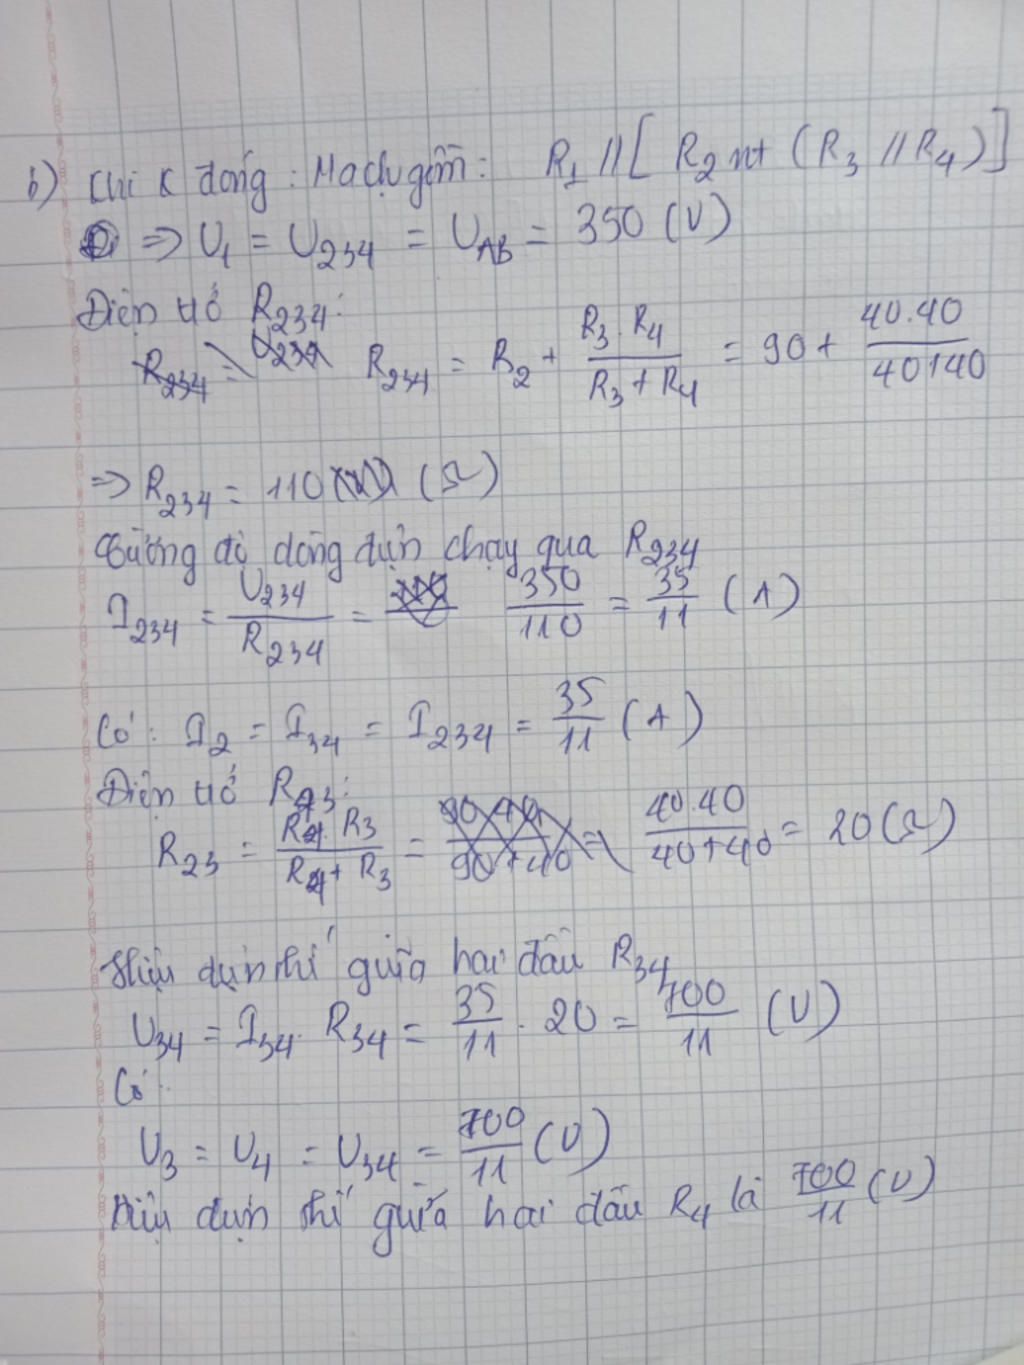 b) Khi K đóng : Mạch gồm: R1 // [ R2 nt ( R3 // R4 ) ]
=> U1 = U234 = UAB = 350 (V)
Điện trở R234:
R234 = U234 R234 = R2 + R3 . R4 / R3 + R4 = 90 + 40.40 / 40+40
=> R234 = 110 (Ω)
Cường độ dòng điện chạy qua R234
I234 = U234 / R234 = 350 / 110 = 35 / 11 (A)
Có: I2 = I34 = I234 = 35 / 11 (A)
Điện trở R43:
R23 = R4 . R3 / R4 + R3 = 90 . 40 / 90 + 40 = 40.40 / 40+40 = 20 (Ω)
Hiệu điện thế giữa hai đầu R34
U34 = I34 . R34 = 35 / 11 . 20 = 700 / 11 (V)
Có:
U3 = U4 = U34 = 700 / 11 (V)
Hiệu điện thế giữa hai đầu R4 là 700 / 11 (V)